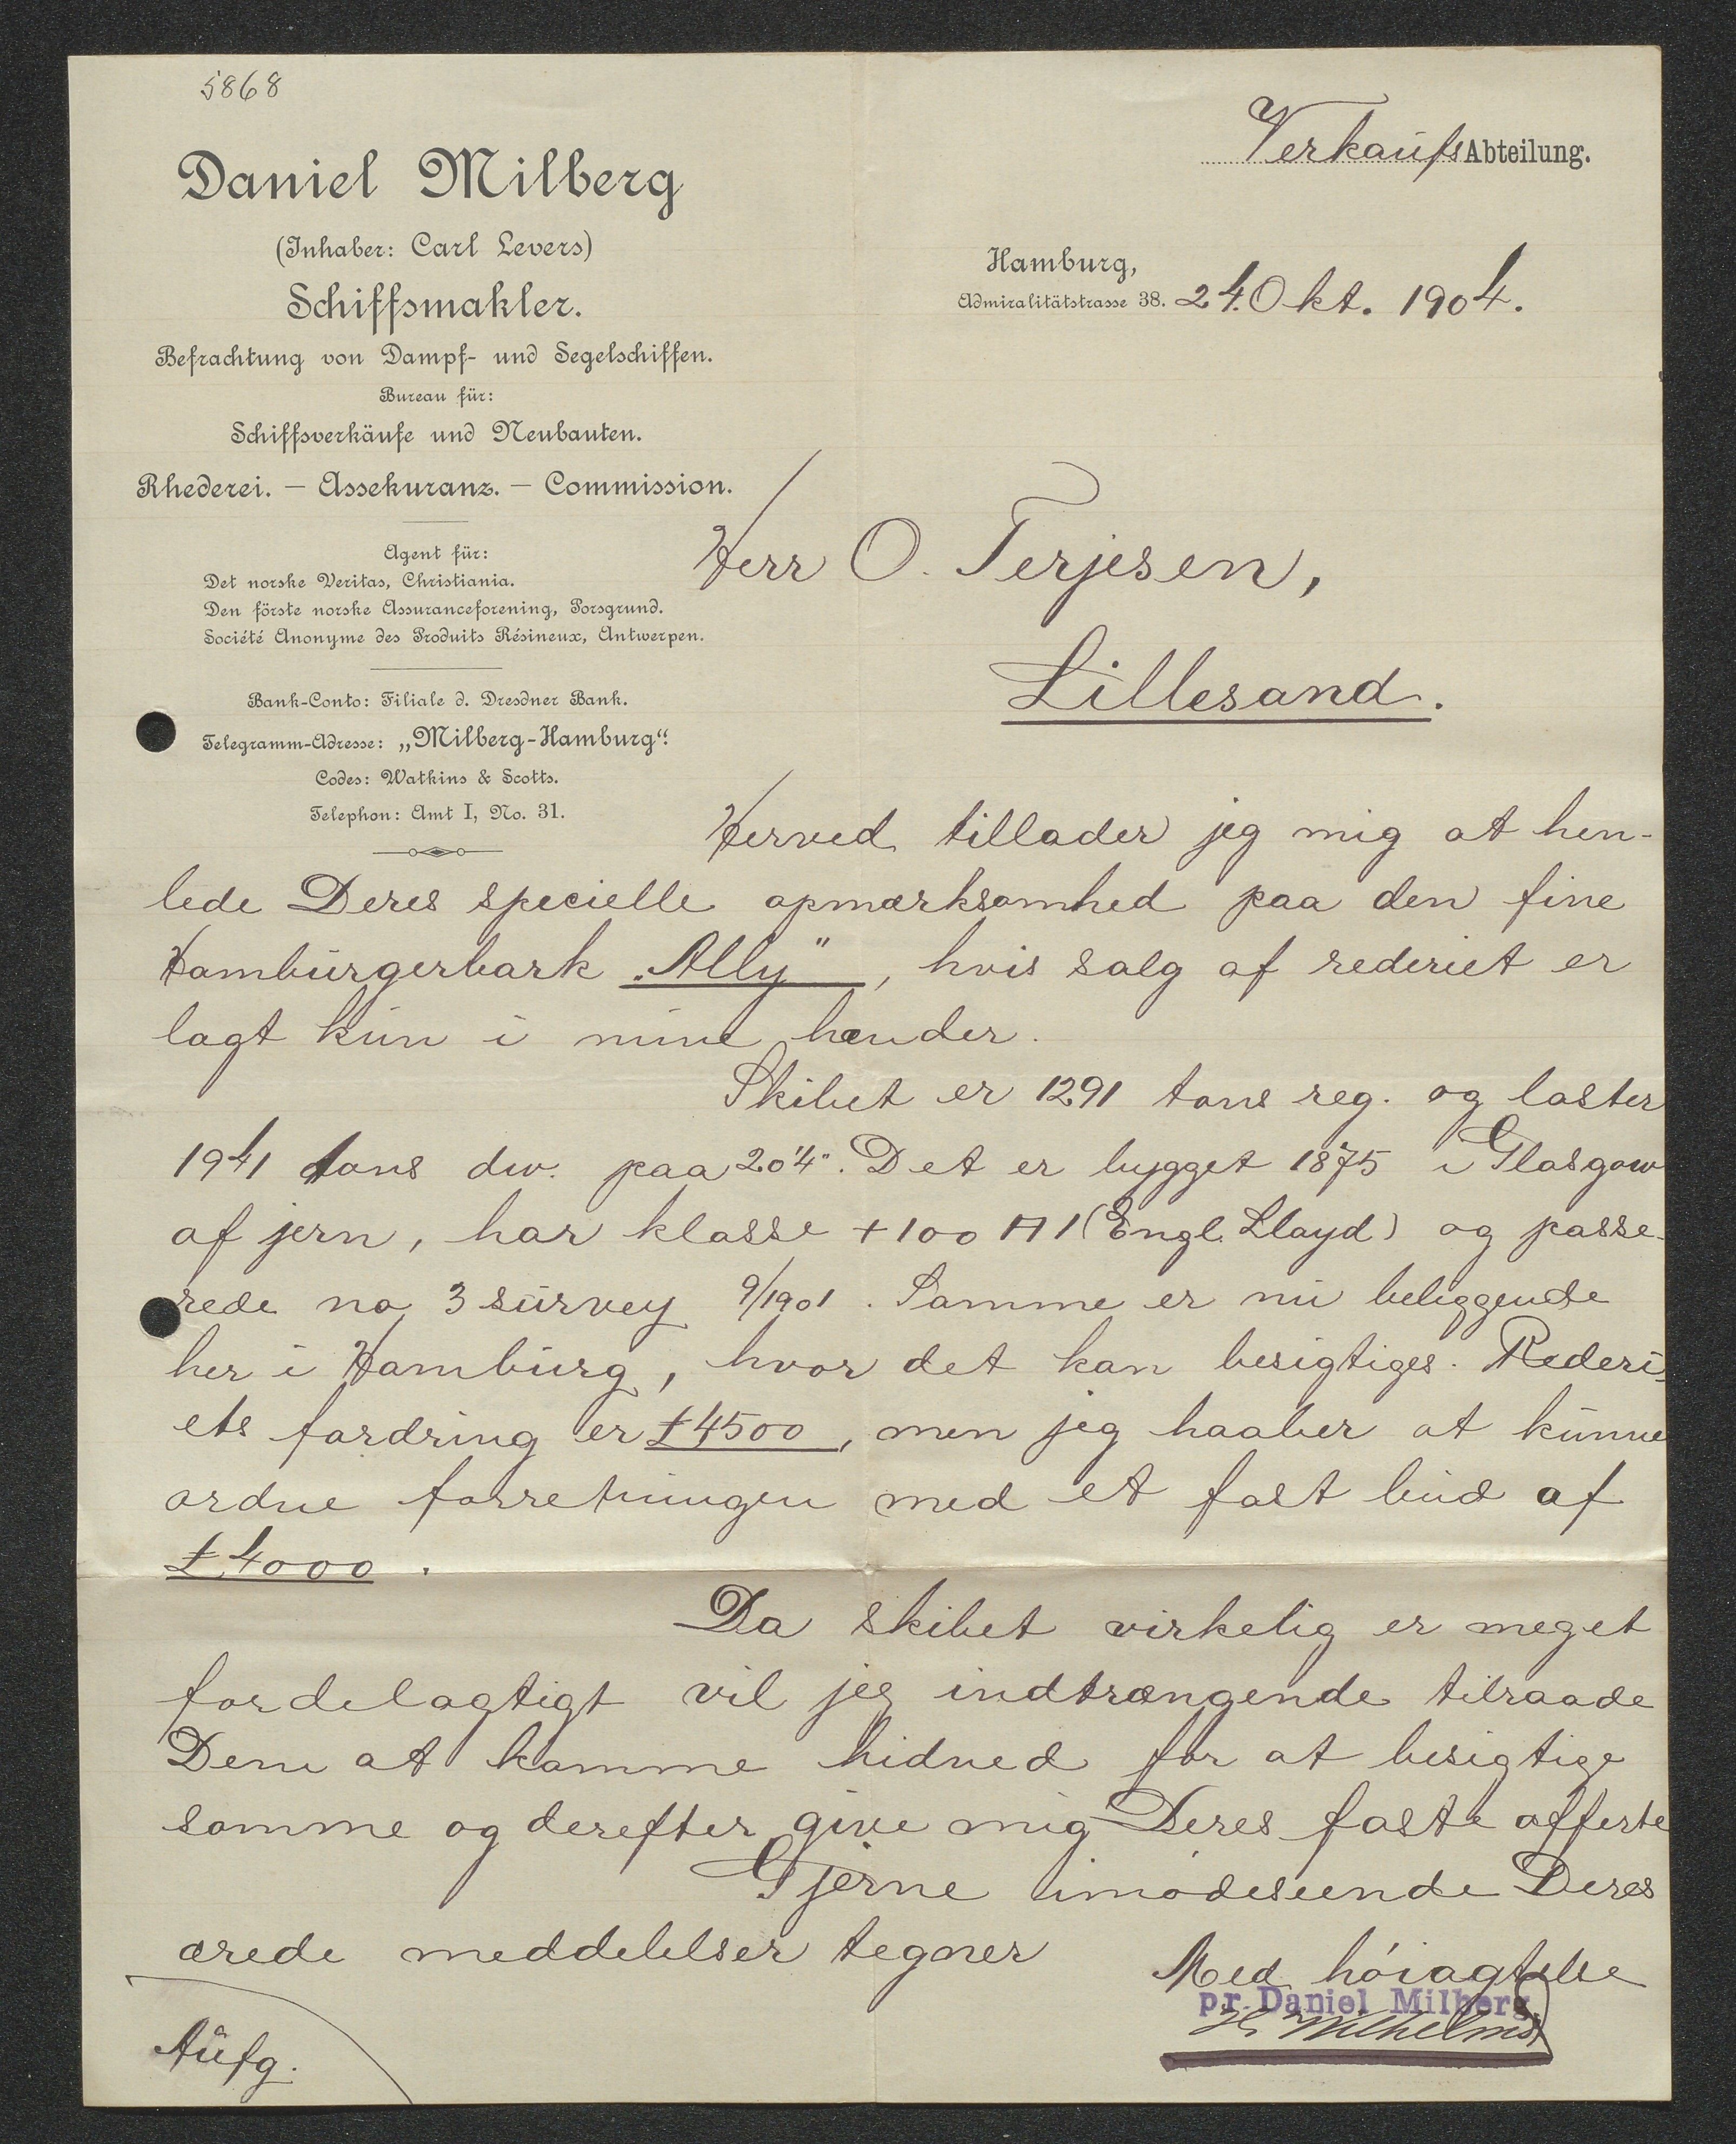 5868
Daniel Milberg
(Inhaber: Carl Levers)
Schiffsmakler.
Befrachtung von Dampf- und Segelschiffen.
Bureau für:
Schiffsverkäufe und Neubauten.
Rhederei. — Assekuranz. — Commission.
Agent für:
Det norske Veritas, Christiania.
Den förste norske Assuranceforening, Porsgrund.
Société Anonyme des Produits Résineux, Antwerpen.
Bank-Conto: Filiale d. Dresdner Bank.
Telegramm-Adresse: „Milberg-Hamburg“.
Codes: Watkins & Scotts.
Telephon: Amt I, No. 31.
Verkaufs Abteilung.
Hamburg,
Admiralitätstrasse 38. 24. Okt. 1904.
Herr O. Terjesen,
Lillesand.
Herved tillader jeg mig at hen-
lede Deres specielle opmærksomhed paa den fine
Hamburgerbark „Ally", hvis salg af rederiet er
lagt kun i mine hænder.
Skibet er 1291 tons reg. og laster
1941 tons dw. paa 20'4". Det er bygget 1875 i Glasgow
af jern, har klasse + 100 A 1 (Engl. Lloyd) og passe-
rede no 3 survey 9/1901. Samme er nu beliggende
her i Hamburg, hvor det kan besigtiges. Rederi-
ets fordring er £4500, men jeg haaber at kunne
ordne forretningen med et fast bud af
£4000.
Da skibet virkelig er meget
fordelagtigt vil jeg indtrængende tilraade
Dem at komme hidned for at besigtige
samme og derefter give mig Deres faste offerte
Gjerne imødeseende Deres
ærede meddelelser tegner
Med höiagtelse
pr. Daniel Milberg.
H. Wilhelms
Aufg.